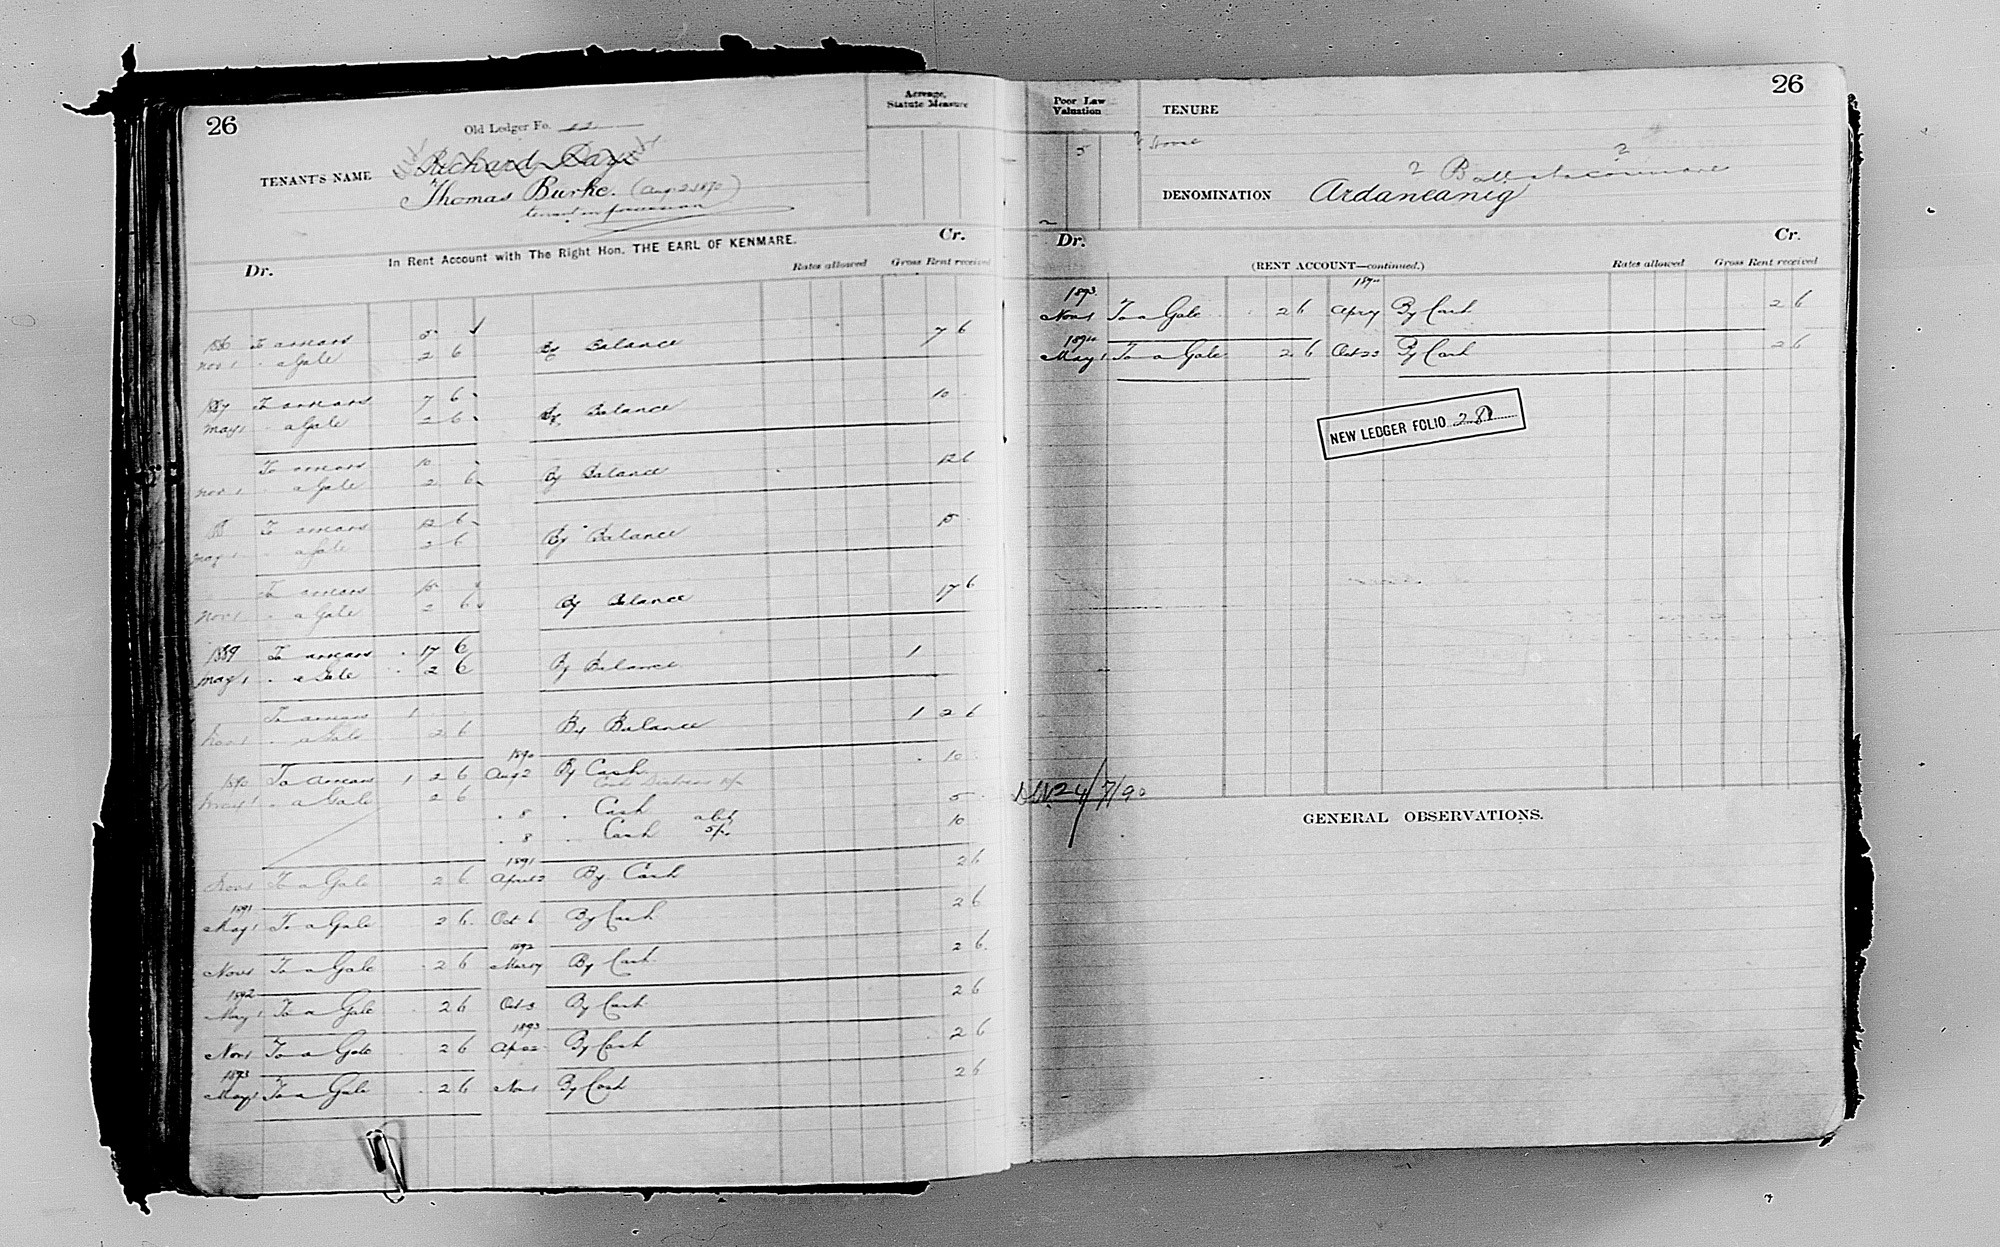 26
Old Ledger Fo. 22
Acreage,
Statute Measure
TENANT'S NAME
Richard Day
Thomas Burke. (Aug 2 1890)
tenant in possession
In Rent Account with The Right Hon. THE EARL OF KENMARE.
Dr. Cr.
Rates allowed Gross Rent received
1886 To arrears 5 By Balance 7 6
Nov 1 " a Gale 2 6
1887 To arrears 7 6 By Balance 10
May 1 " a Gale 2 6
To arrears 10 By Balance 12 6
Nov 1 " a Gale 2 6
To arrears 12 6 By Balance 15
May 1 " a Gale 2 6
To arrears 15 By Balance 17 6
Nov 1 " a Gale 2 6
1889 To arrears 17 6 By Balance 1
May 1 " a Gale 2 6
To arrears 1 By Balance 1 2 6
Nov 1 " a Gale 2 6
1890
1890 To arrears 1 2 6 Aug 2 By Cash 10
May 1 " a Gale 2 6
" 8 " Cash 5
" 8 Cash 10
1891
Nov 1 To a Gale 2 6 April 2 By Cash 2 6
1891
May 1 To a Gale 2 6 Oct 6 By Cash 2 6
1892
Nov 1 To a Gale 2 6 By Cash 2 6
1892
May 1 To a Gale 2 6 Oct 3 By Cash 2 6
1893
Nov 1 To a Gale 2 6 By Cash 2 6
1893
May 1 To a Gale 2 6 Nov 1 By Cash 2 6
26
Poor Law
Valuation
5
TENURE
? House
DENOMINATION Ardaneanig
Dr. Cr.
(RENT ACCOUNT—continued.)
Rates allowed Gross Rent received
1893 1894
Nov 1 To a Gale 2 6 By Cash 2 6
1894
May 1 To a Gale 2 6 Oct 23 By Cash 2 6
NEW LEDGER FOLIO
24/7/90
GENERAL OBSERVATIONS.